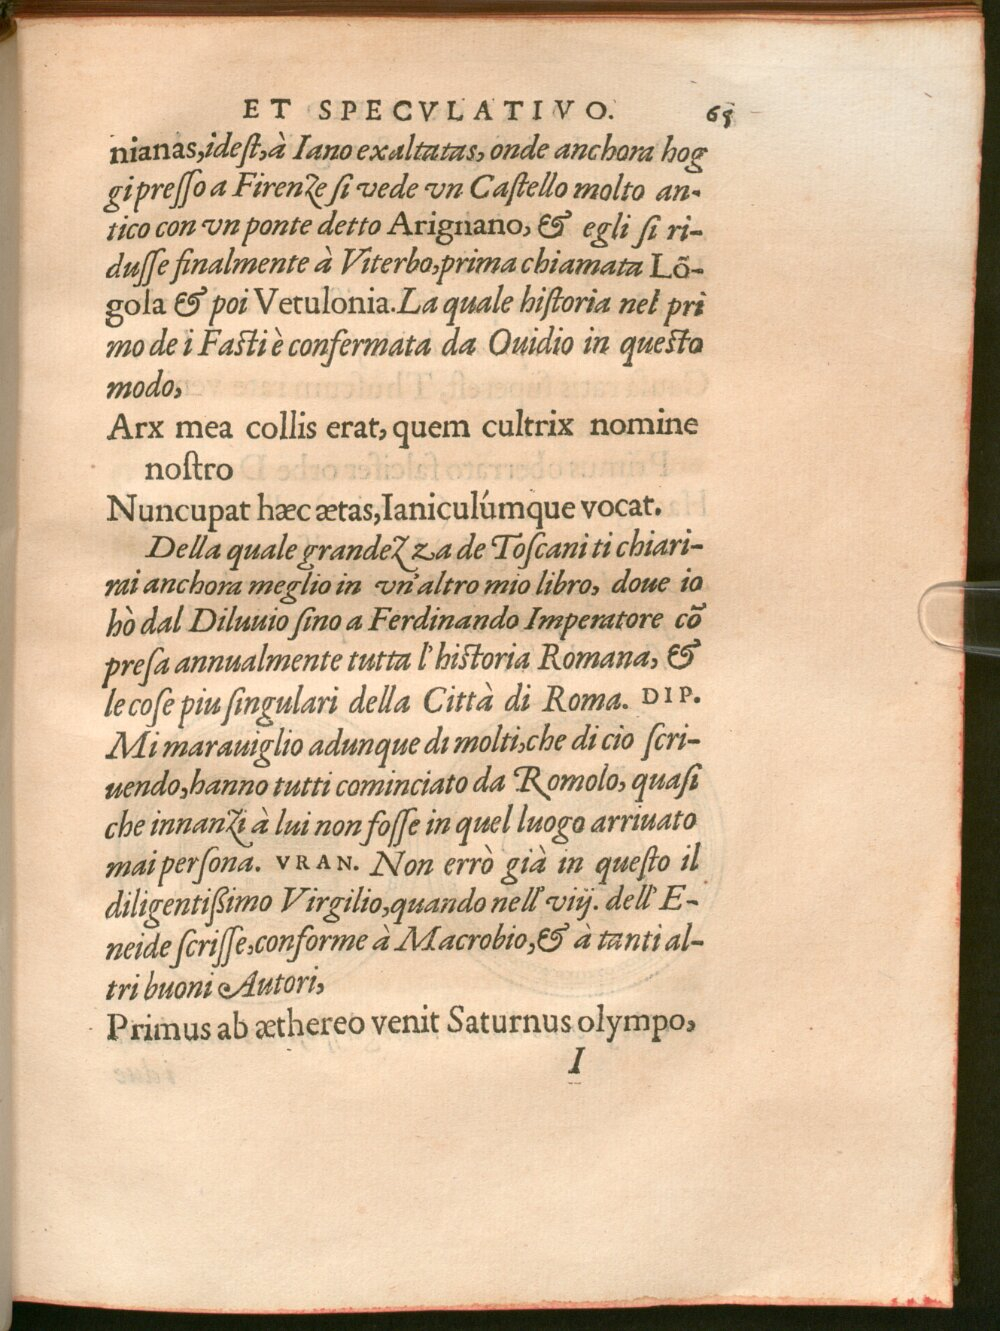 ET SPECVLATIVO. 65
nianas, idest, à Iano exaltatas, onde anchora hog
gi presso a Firenze si vede vn Castello molto an-
tico con vn ponte detto Arignano, & egli si ri-
dusse finalmente à Viterbo, prima chiamata Lõ-
gola & poi Vetulonia. La quale historia nel pri
mo de i Fasti è confermata da Ouidio in questo
modo,
Arx mea collis erat, quem cultrix nomine
nostro
Nuncupat hæc ætas, Ianiculúmque vocat.
Della quale grandezza de Toscani ti chiari-
rai anchora meglio in vn'altro mio libro, doue io
hò dal Diluuio sino a Ferdinando Imperatore cõ
presa annualmente tutta l'historia Romana, &
le cose piu singulari della Città di Roma. DIP.
Mi marauiglio adunque di molti, che di cio scri-
uendo, hanno tutti cominciato da Romolo, quasi
che innanzi à lui non fosse in quel luogo arriuato
mai persona. VRAN. Non errò già in questo il
diligentissimo Virgilio, quando nell'viij. dell'E-
neide scrisse, conforme à Macrobio, & à tanti al-
tri buoni Autori,
Primus ab æthereo venit Saturnus olympo,
I